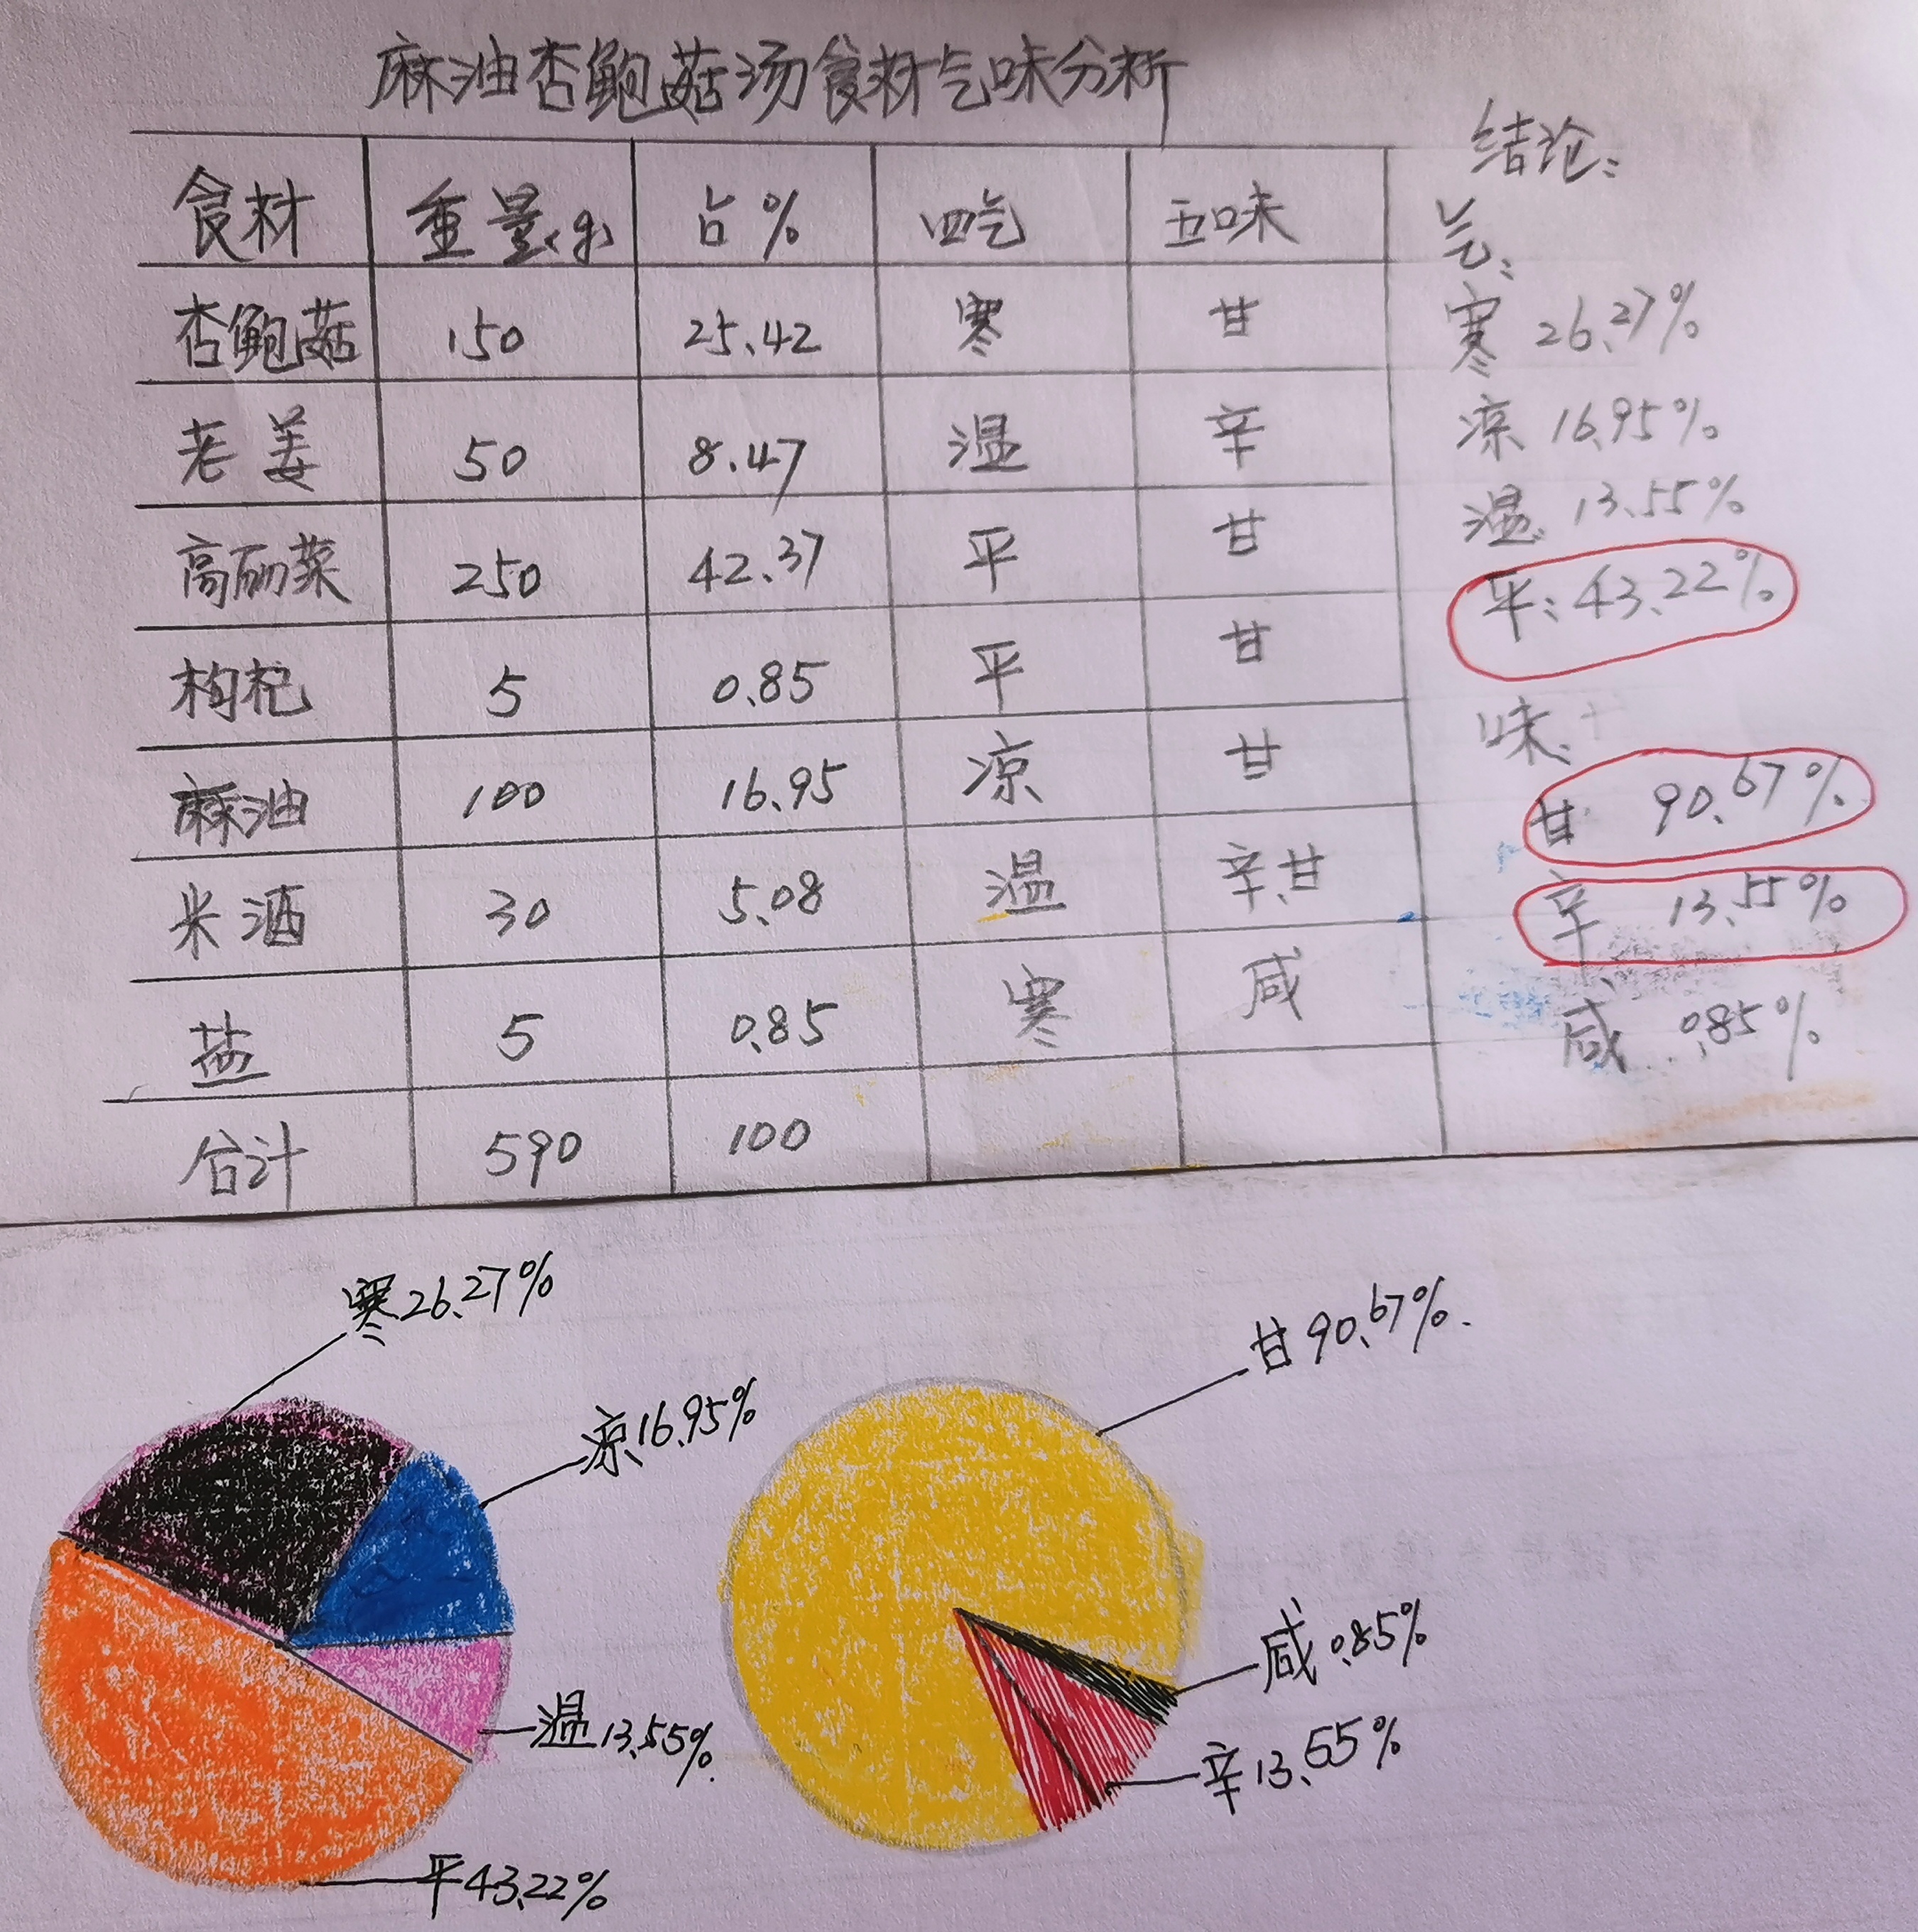 麻油杏鲍菇汤食材气味分析
食材 重量(g) 占% 四气 五味
杏鲍菇 150 25.42 寒 甘
老姜 50 8.47 温 辛
高丽菜 250 42.37 平 甘
枸杞 5 0.85 平 甘
麻油 100 16.95 凉 甘
米酒 30 5.08 温 辛、甘
盐 5 0.85 寒 咸
合计 590 100
结论:
气:
寒 26.27%
凉 16.95%
温 13.55%
平: 43.22%
味:
甘 90.67%
辛 13.55%
咸 0.85%
寒26.27%
凉16.95%
温13.55%
平43.22%
甘90.67%
咸0.85%
辛13.55%